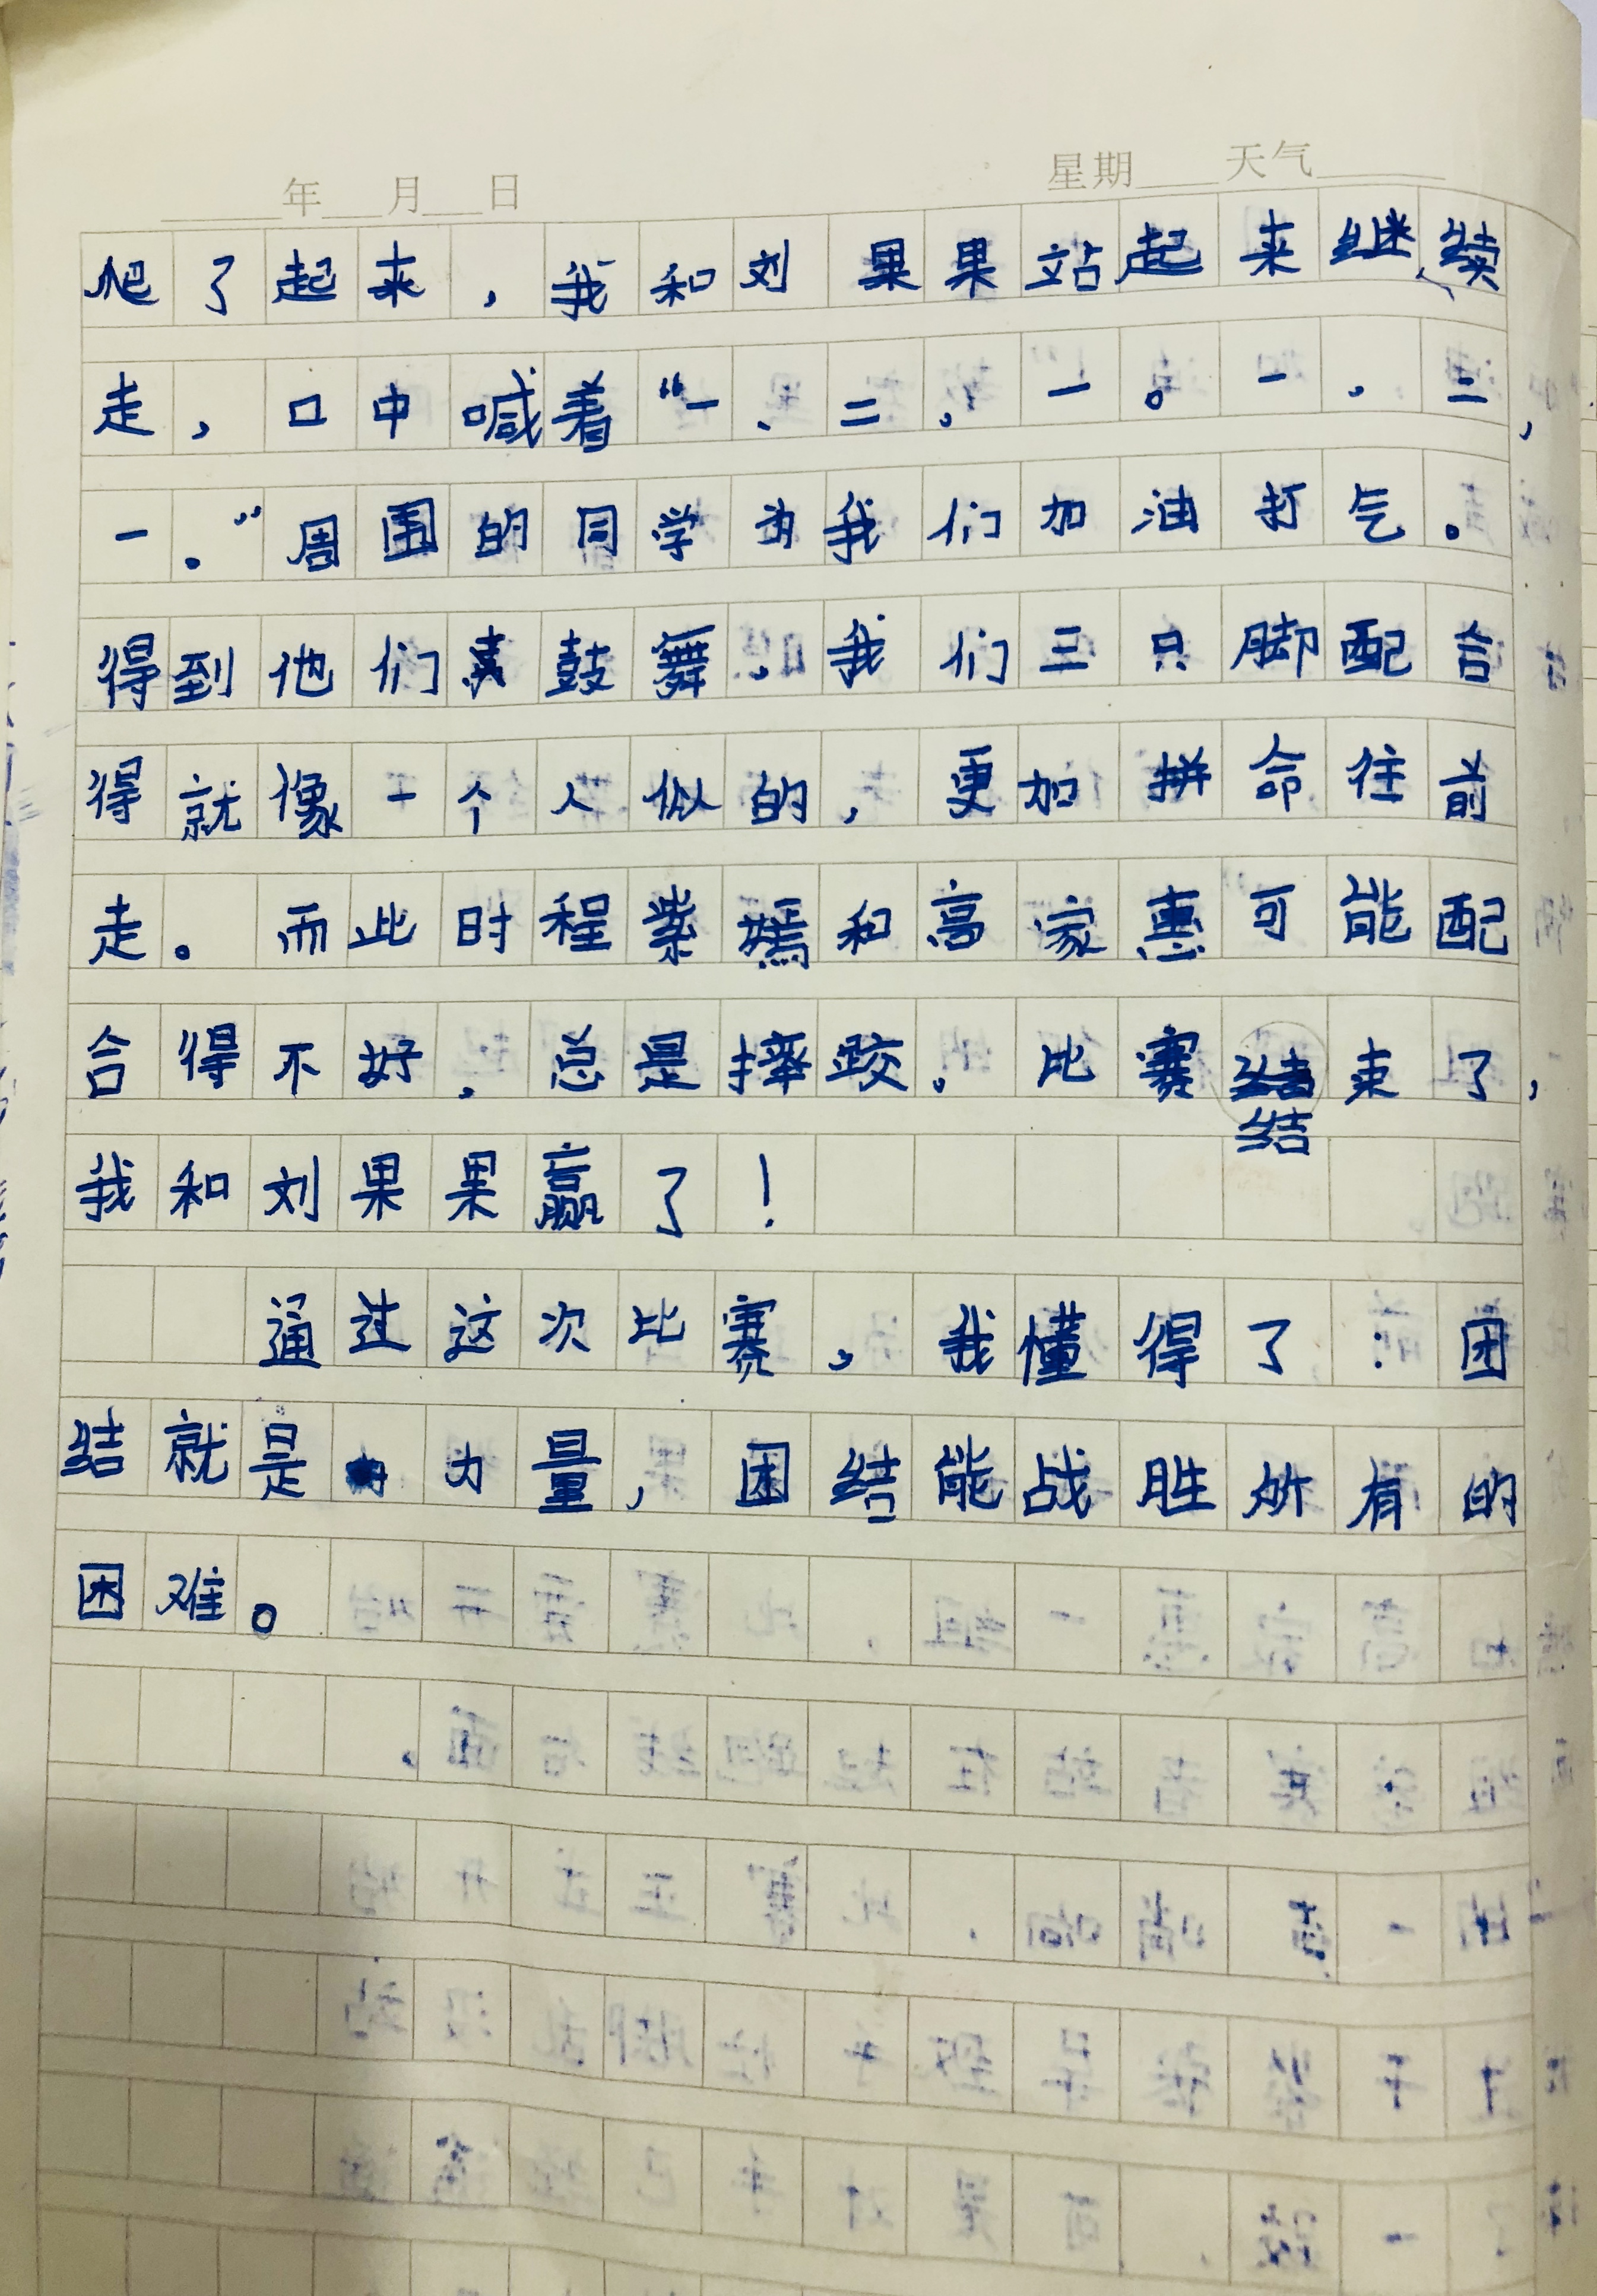 年 月 日 星期 天气
爬了起来，我和刘果果站起来继续
走，口中喊着“一、二，一。一、二，
一。”周围的同学为我们加油打气。
得到他们鼓舞，我们三只脚配合
得就像一个人似的，更加拼命往前
走。而此时程紫嫣和高家惠可能配
合得不好，总是摔跤。比赛结束了，
我和刘果果赢了！
通过这次比赛，我懂得了：团
结就是力量，团结能战胜所有的
困难。